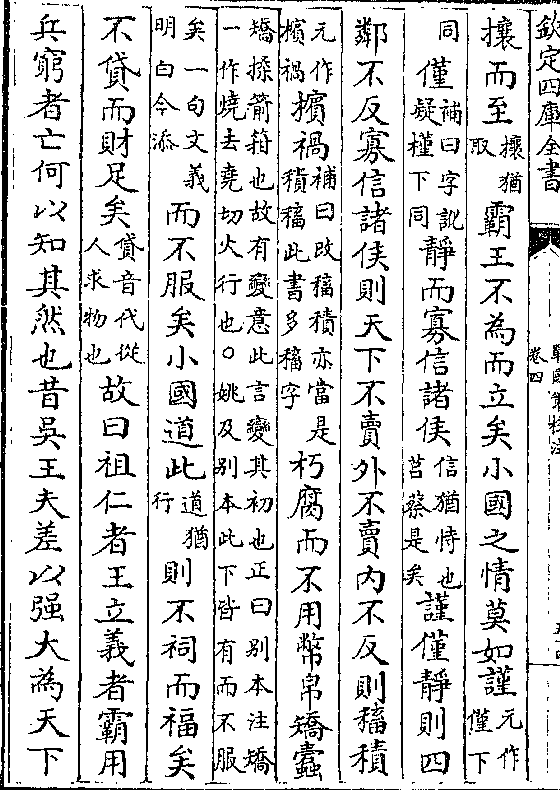 欽定四庫全書
卷四
攘而至攘猶取霸王不為而立矣小國之情莫如謹元作僅下
同僅補曰字訛疑槿下同靜而寡信諸侯信猶恃也莒蔡是矣謹僅靜則四
鄰不反寡信諸侯則天下不賣外不賣内不反則稸積
元作擯禍擯禍補曰改稸積亦當是積稸此書多稸字朽腐而不用幣帛矯蠹
矯揉箭箝也故有變意此言變其初也正曰别本注矯
一作燒去堯切火行也○姚及别本此下皆有而不服
矣一句文義明白今添而不服矣小國道此道猶行則不祠而福矣
不貸而財足矣貸音代從人求物也故曰祖仁者王立義者霸用
兵窮者亡何以知其然也昔吳王夫差以强大為天下